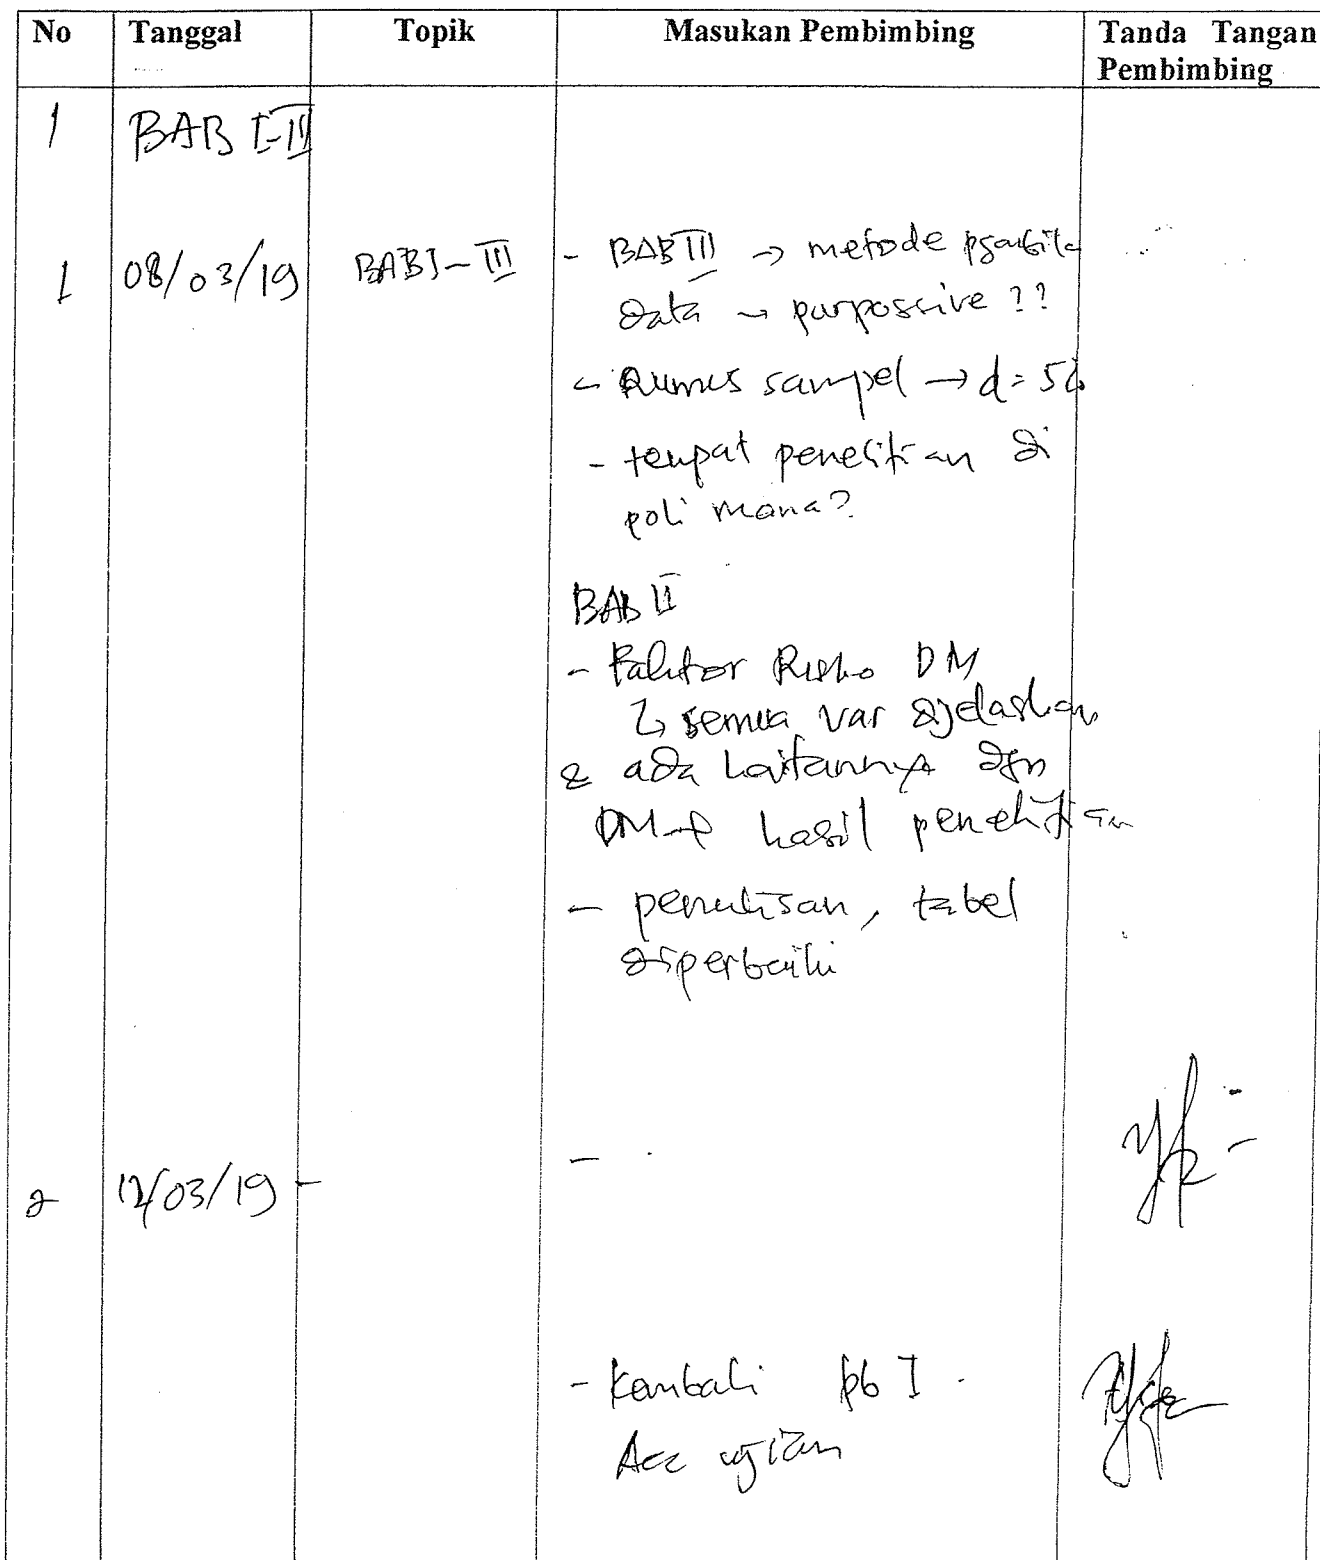 No Tanggal Topik Masukan Pembimbing Tanda Tangan
Pembimbing
1 BAB I-III
1 08/03/19 BAB I - III - BAB III → metode
data → purpossive ??
- Rumus sampel → d = 5%
- tempat penelitian di
poli mana?
BAB II
- Faktor Risiko DM
↳ semua var dijelaskan
& ada kaitannya dgn
DM → hasil penelitian
- penulisan, tabel
diperbaiki
2 12/03/19 - -
- Kembali pb I.
Acc ujian